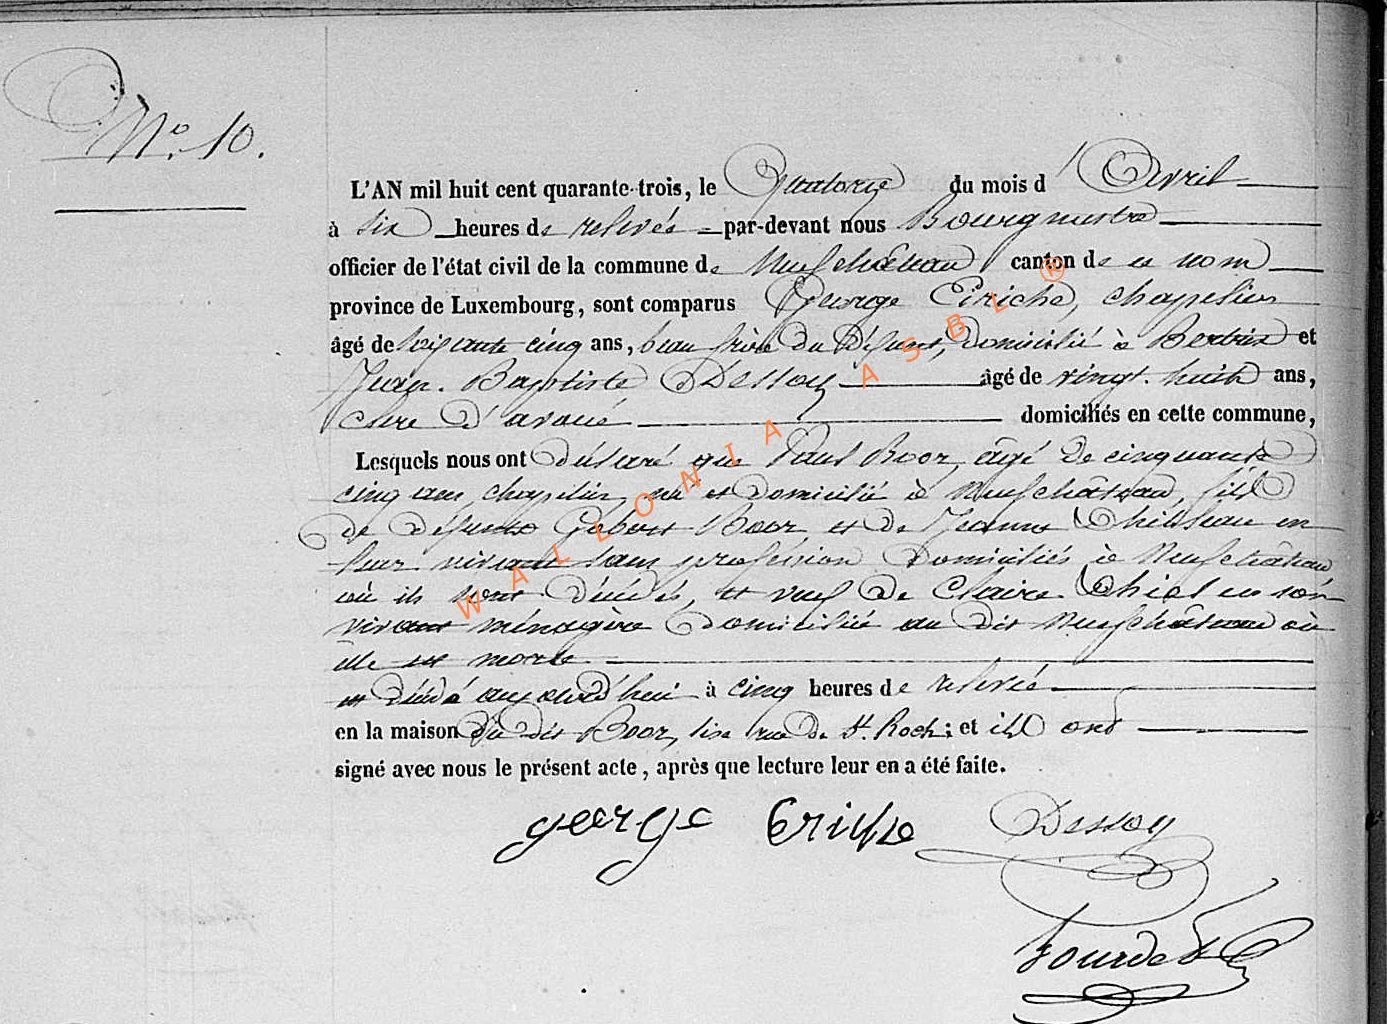 N° 10.
L'AN mil huit cent quarante-trois, le Quatorze du mois d'Avril
à six heures de relevée par-devant nous Bourgmestre
officier de l'état civil de la commune de Neufchâteau canton de ce nom
province de Luxembourg, sont comparus George Eriche, chapelier
âgé de soixante cinq ans, beau frère du défunt, domicilié à Bertrix et
Jean-Baptiste Dessoy âgé de vingt-huit ans,
clerc d'avoué domiciliés en cette commune,
Lesquels nous ont déclaré que Paul Boor, âgé de cinquante
cinq ans, chapelier, né et domicilié à Neufchâteau, fils
de défunts Gobert Boor et de Jeanne en
leur vivant sans profession domiciliés à Neufchâteau
où ils sont décédés, et veuf de Claire Thiel en son
vivant ménagère domiciliée au dit Neufchâteau où
elle est morte
est décédé aujourd'hui à cinq heures de relevée
en la maison du dit Boor, sise rue de St. Roch; et ils ont
signé avec nous le présent acte, après que lecture leur en a été faite.
george Eriche Dessoy
WALLONIA ASBL ®